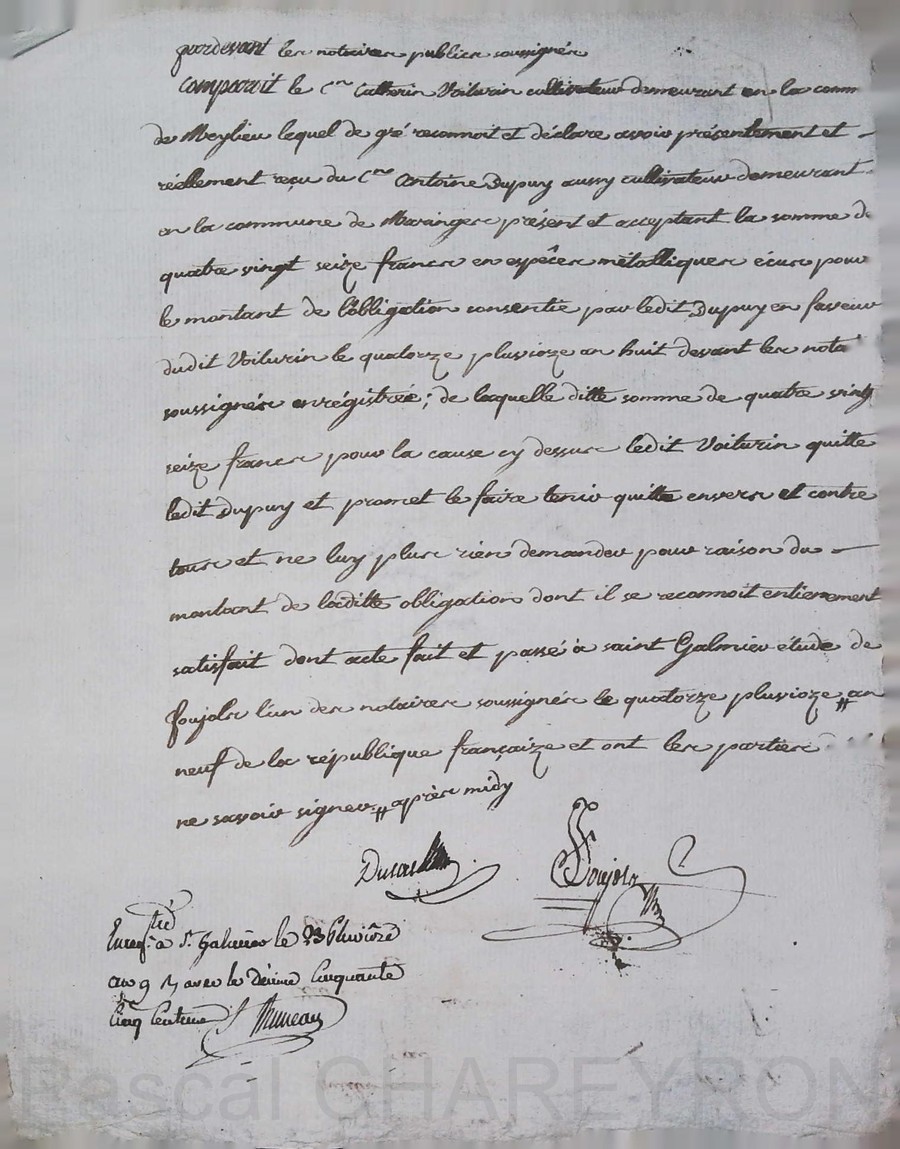 pardevant les notaires publics soussignés
comparait le C.en Catherin Voiturin cultivateur demeurant en la comm
de Meylieu lequel de gré reconnoit et déclare avoir présentement et
réellement reçu du C.en Antoine Dupuy aussy cultivateur demeurant
en la commune de Maringes présent et acceptant la somme de
quatre vingt seize francs en espêces métalliques écus pour
le montant de l'obligation consentie par ledit Dupuy en faveur
dudit Voiturin le quatorze pluvioze an huit devant les nota
soussignés enrégistrée; de laquelle ditte somme de quatre vingt
seize francs pour la cause cy dessus ledit Voiturin quitte
ledit Dupuy et promet le faire tenir quitte envers et contre
tous et ne luy plus rien demander pour raison du
montant de laditte obligation dont il se reconnoit entierement
satisfait dont acte fait et passé à saint Galmier étude de
foujols l'un des notaires soussignés le quatorze pluvioze # an
neuf de la république françaize et ont les parties
ne savoir signer. # après midy
Ducas
Foujols
Enregtré à St. Galmier le 23 Pluviôse
an 9 avec le Décime Cinquante
Cinq Centimes
Pascal CHAREYRON